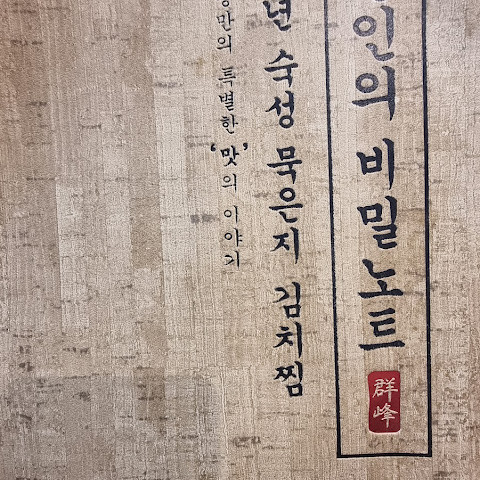 인의 비밀노트
群峰
년 숙성 묵은지 김치찜
만의 특별한 '맛'의 이야기